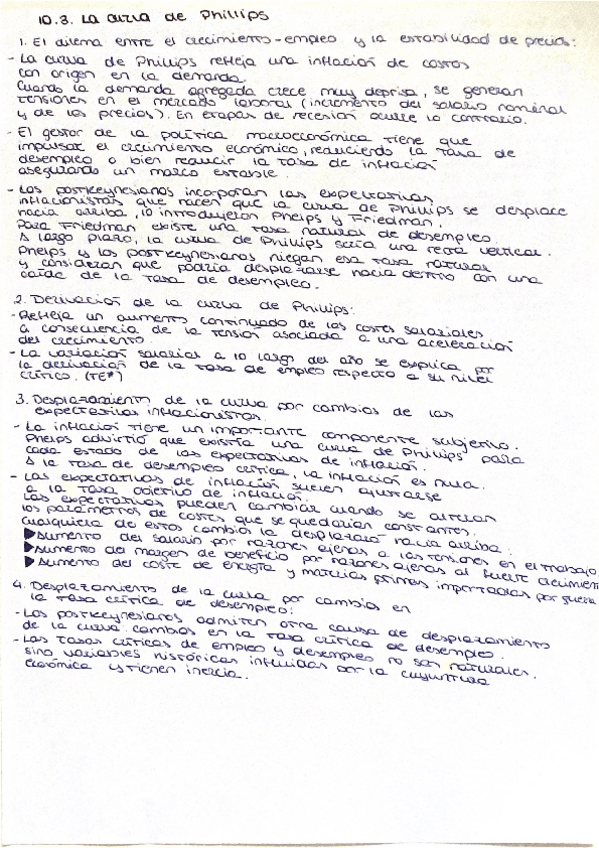 10.3. La curva de Phillips
1. El dilema entre el crecimiento-empleo y la estabilidad de precios:
- La curva de Phillips refleja una inflación de costos
con origen en la demanda.
Cuando la demanda agregada crece muy deprisa, se generan
tensiones en el mercado laboral (incremento del salario nominal
y de los precios). En etapas de recesión ocurre lo contrario.
- El gestor de la política macroeconómica tiene que
impulsar el crecimiento económico, reduciendo la tasa de
desempleo o bien reducir la tasa de inflación
asegurando un marco estable.
- Los postkeynesianos incorporan las expectativas
inflacionistas que hacen que la curva de Phillips se desplace
hacia arriba, lo introdujeron Phelps y Friedman.
Para Friedman existe una tasa natural de desempleo.
A largo plazo, la curva de Phillips sería una recta vertical.
Phelps y los postkeynesianos niegan esa tasa natural
y consideran que podría desplazarse hacia dentro con una
caída de la tasa de desempleo.
2. Derivación de la curva de Phillips:
- Refleja un aumento continuado de los costes salariales
a consecuencia de la tensión asociada a una aceleración
del crecimiento.
- La variación salarial a lo largo del año se explica por
la desviación de la tasa de empleo respecto a su nivel
crítico. (TE*)
3. Desplazamiento de la curva por cambios de las
expectativas inflacionistas.
- La inflación tiene un importante componente subjetivo.
Phelps advirtió que existía una curva de Phillips para
cada estado de las expectativas de inflación.
A la tasa de desempleo crítica, la inflación es nula.
- Las expectativas de inflación suelen ajustarse
a la tasa objetivo de inflación.
Las expectativas pueden cambiar cuando se alteran
los parámetros de costes que se quedarían constantes.
Cualquiera de estos cambios la desplazará hacia arriba:
▶ Aumento del salario por razones ajenas a las tensiones en el trabajo
▶ Aumento del margen de beneficio por razones ajenas al fuerte crecimiento
▶ Aumento del coste de energía y materias primas importadas por guerra
4. Desplazamiento de la curva por cambios en
la tasa crítica de desempleo:
- Los postkeynesianos admiten otra causa de desplazamiento
de la curva: cambios en la tasa crítica de desempleo.
- Las tasas críticas de empleo y desempleo no son naturales.
sino variables históricas influidas por la coyuntura
económica y tienen inercia.